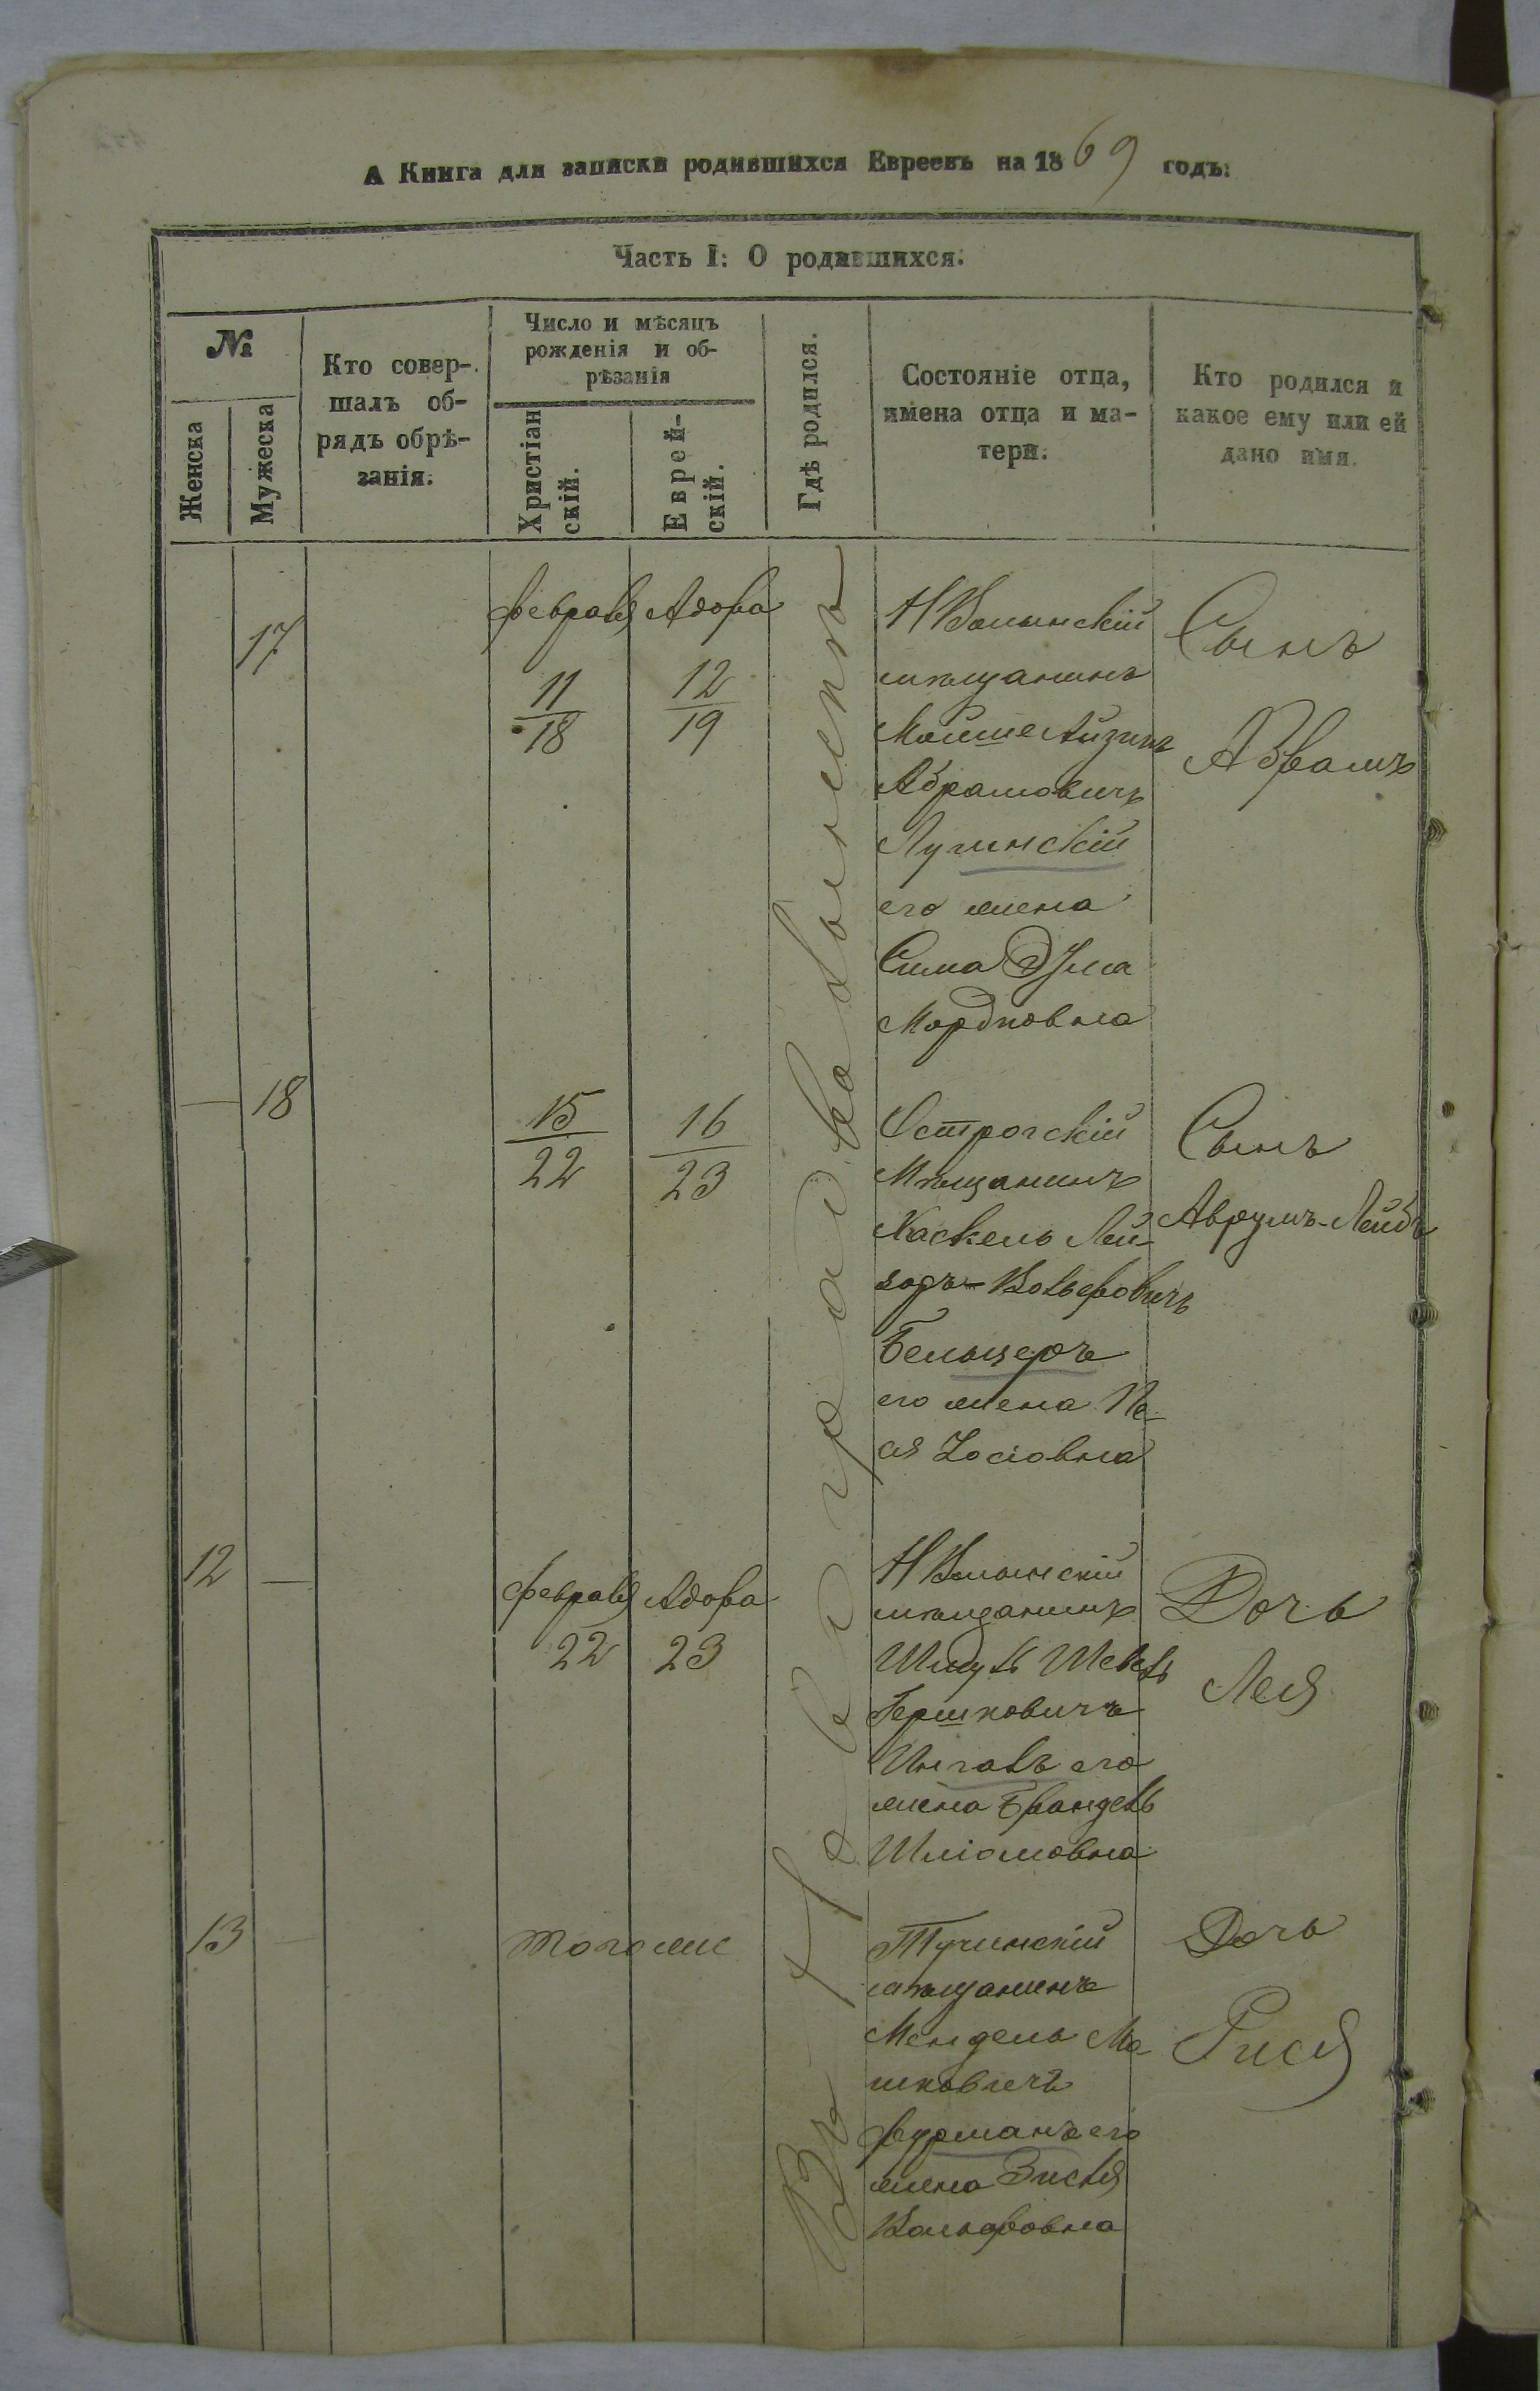 А Книга для записки родившихся Евреевъ на 1869 годъ:
Часть I: О родившихся.
№
Женска
Мужеска
Кто совер-
шалъ об-
рядъ обрѣ-
занія.
Число и мѣсяцъ
рожденія и об-
рѣзанія
Христіан
скій.
Еврей-
скій.
Гдѣ родился.
Состояніе отца,
имена отца и ма-
тери.
Кто родился и
какое ему или ей
дано имя.
17
февраля Адара
11
18
12
19
НВолынскій
мѣщанинъ
Мойше Айзикъ
Абрамовичъ
Лугинскій
его жена
Сима
Мордковна
Сынъ
Абрамъ
18
15
22
16
23
Острогскій
Мѣщанинъ
Хаскель Лей-
зоръ-Вольфовичъ
Бельцеръ
его жена Пе-
ся Іосіовна
Сынъ
Аврумъ-Лейбъ
12 —
февраля Адара
22 23
НВолынскій
мѣщанинъ
Шмуль
Гершковичъ
его
жена Брандель
Шліомовна
Дочь
Лея
13
того же
Тучинскій
мѣщанинъ
Мендель Мо-
шковичъ
Фурманъ его
жена Зисля
Вольфовна
Дочь
Рися
Въ г